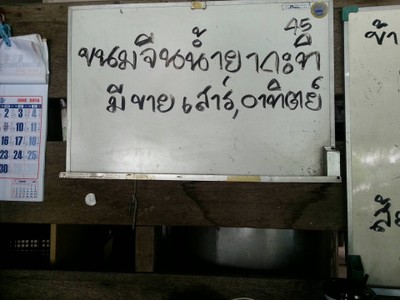 45
ขนมจีนน้ำยากะทิ
มีขาย เสาร์,อาทิตย์
ข้า
JUNE 2014
2 3 4
9 10 11
16 17 18
23 24 25
30